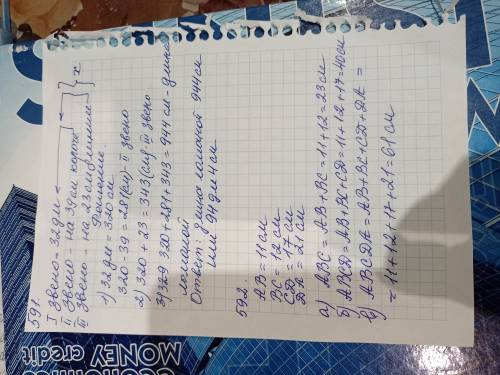 591.
I звено - 32 дм
II звено - на 39 см короче
II звено - на 23 см длиннее
x
Решение.
1) 32 дм = 320 см.
320 - 39 = 281 (см) - II звено
2) 320 + 23 = 343 (см) - II звено
3) 320 + 281 + 343 = 944 см - длина
ломаной
Ответ: длина ломаной 944 см
или 94 дм 4 см
592.
AB = 11 см
BC = 12 см
CD = 17 см
DA = 21 см
а) ABC = AB + BC = 11 + 12 = 23 см
б) ABCD = AB + BC + CD = 11 + 12 + 17 = 40 см
в) ABCDA = AB + BC + CD + DA =
= 11 + 12 + 17 + 21 = 61 см
economics
MONEY
credit